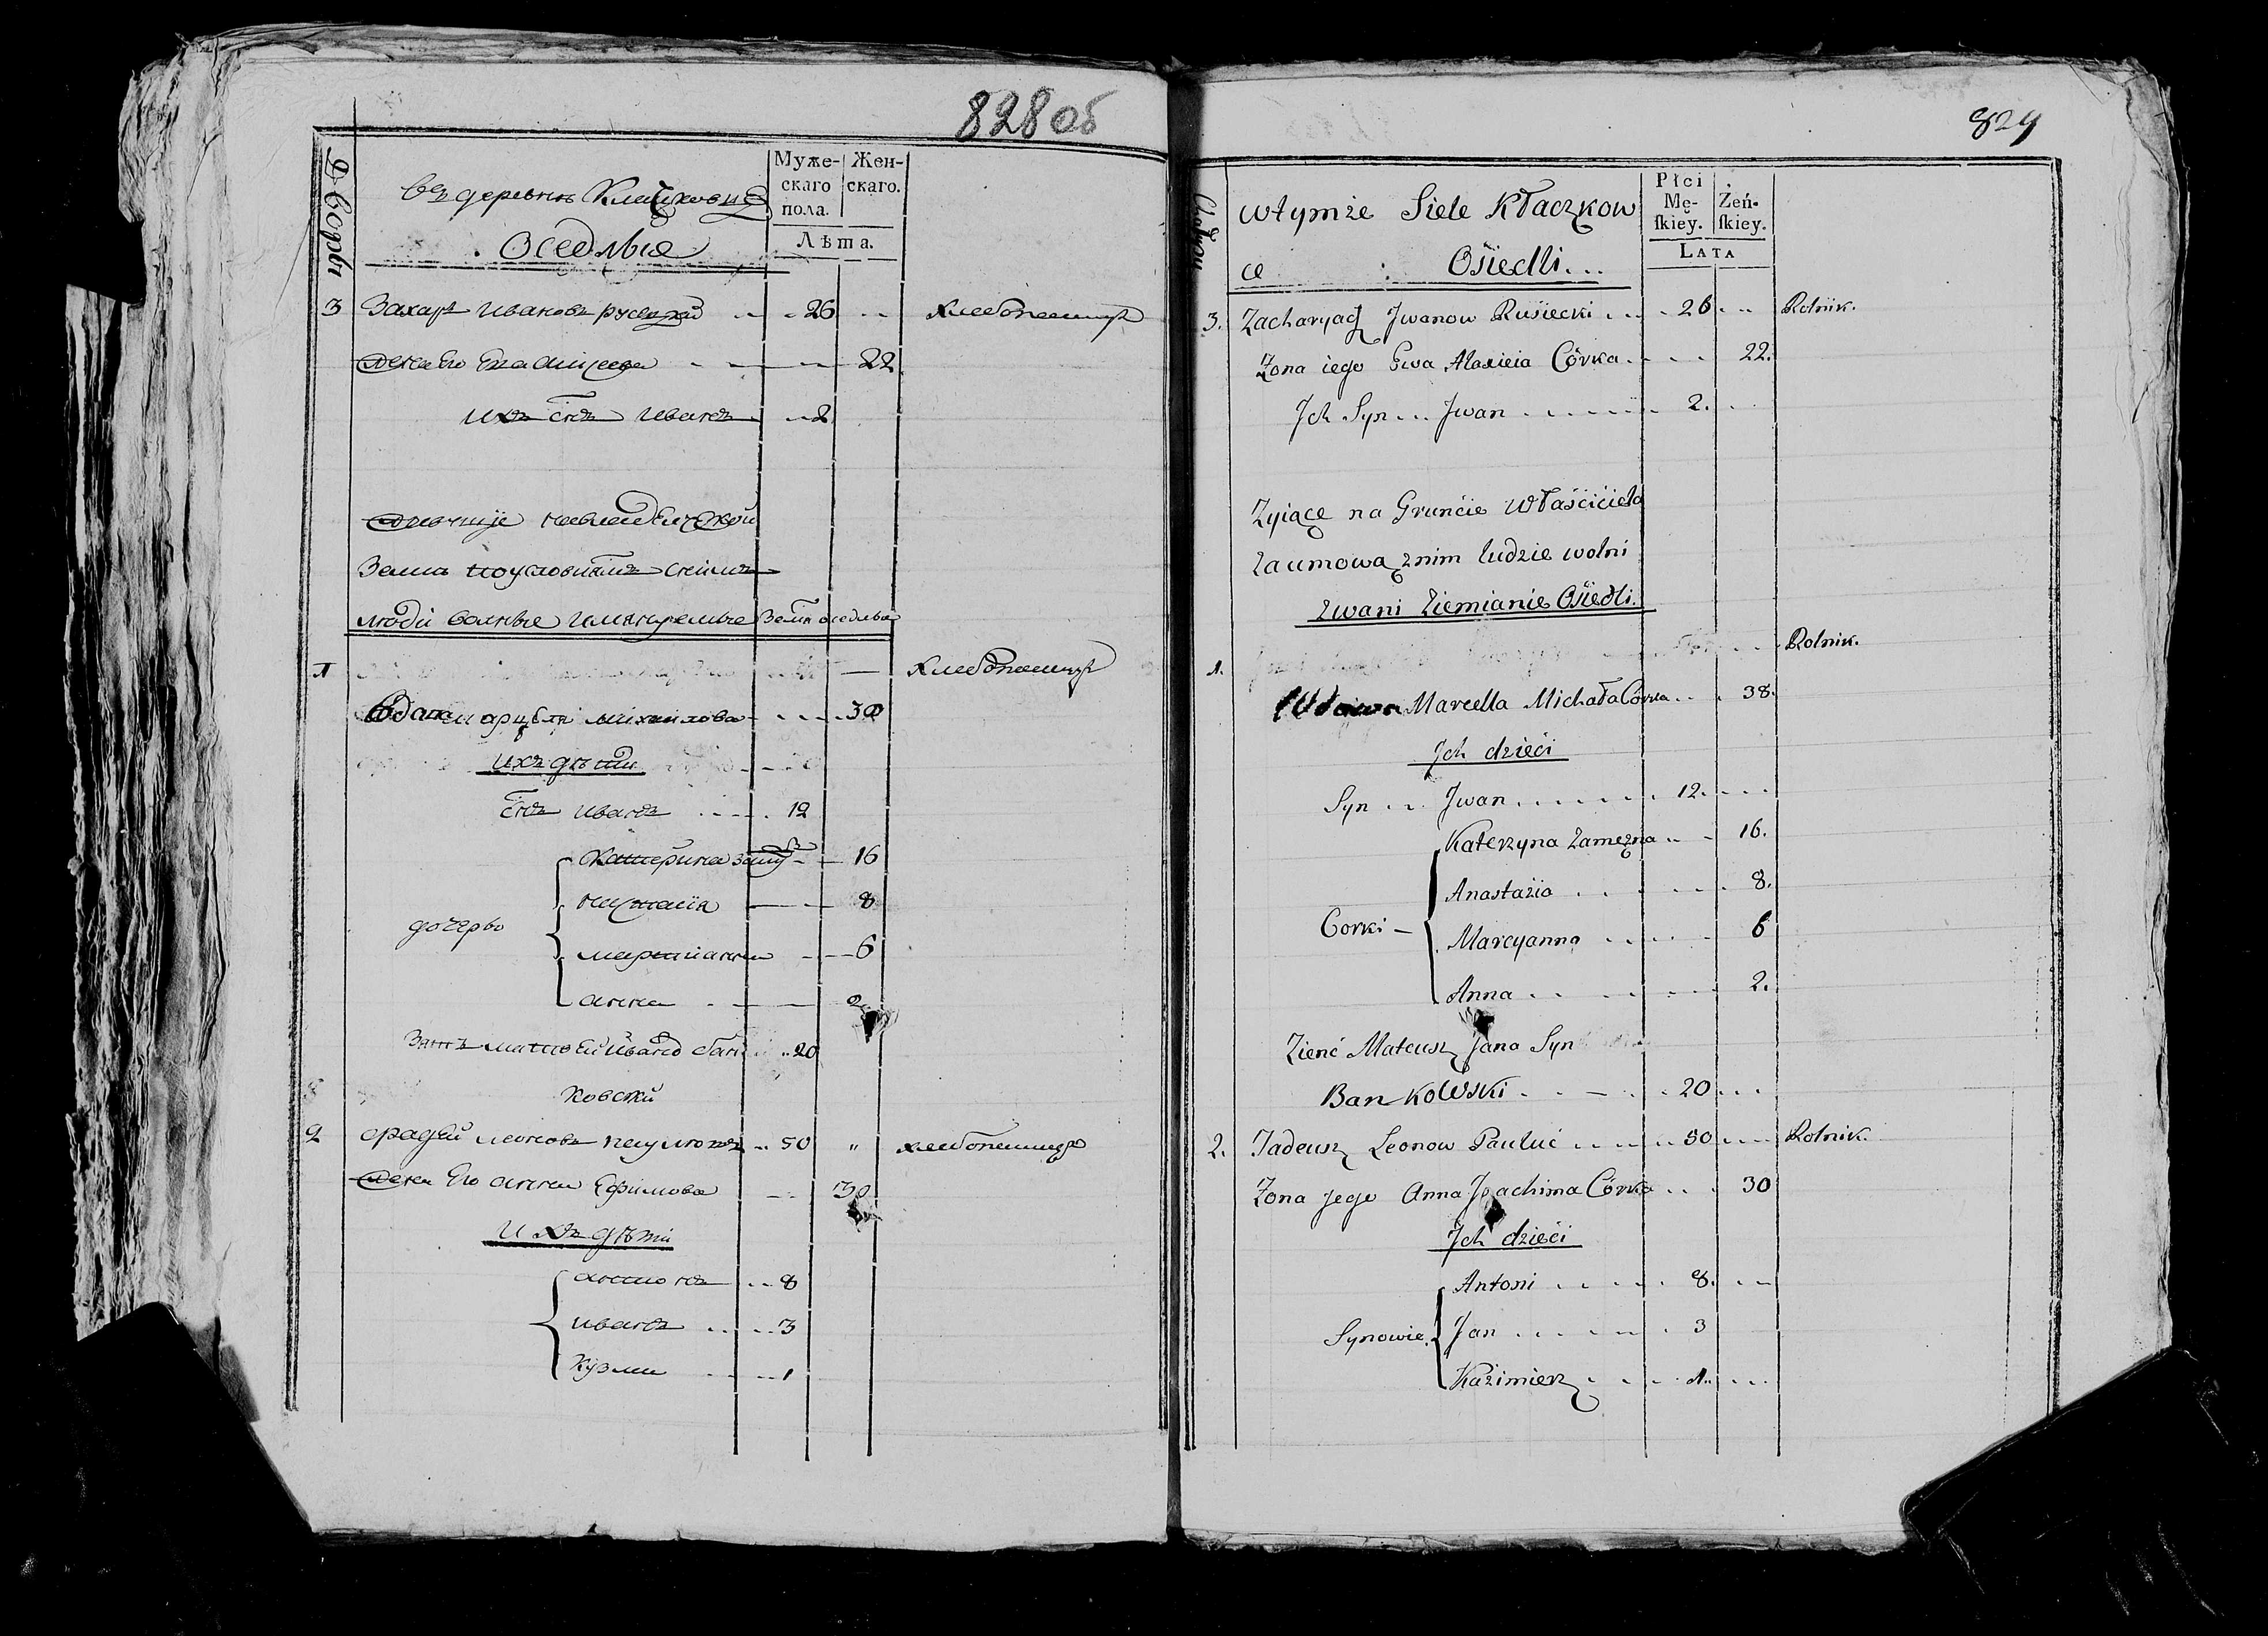 828 об
Дворы
въ деревнѣ Клачковце
Оседлые
Муже-
скаго
пола.
Жен-
скаго.
Лѣта.
3 Захаръ Ивановъ русецкий 26 хлебопашецъ
жена Его 22
ихъ снъ Иванъ 2
земли
люди волные земяне оседлые
1 — хлебопашецъ
Вдова марцеля михайлова 38
ихъ дѣти
снъ Иванъ 12
Катерина замуж 16
настасия 8
дочерьи
марцианна 6
анна 2
Зять матвей Иванов бан 20
ковский
2 фадей леоновъ паулюць 50 " хлебопашецъ
жена Его анна Ефимова 30
ихъ дѣти
антонъ 8
иванъ 3
Кузма 1
829
wtymże Siele Kłaczkow
ce Osiedli...
Płci
Mę-
ſkiey.
Żeń-
ſkiey.
LATA
3. Zacharyasz Jwanow Rusiecki 26 Rolnik.
Zona iego Ewa Alaxieia Córka 22.
Jch Syn Jwan 2.
Zyiące na Gruncie Właściciela
za umową z nim ludzie wolni
zwani Ziemianie Osiedli.
1. Rolnik.
Wdowa Marcella Michała Corka 38.
Jch dzieci
Syn Jwan 12.
Katerzyna Zamężna 16.
Anastazia 8.
Corki –
Marcyanna 6
Anna 2.
Zienć Mateusz Jana Syn
Bankowski 20
2. Tadeusz Leonow Pauluć 50 Rolnik.
Zona jego Anna Joachima Córka 30
Jch dzieci
Antoni 8.
Synowie. Jan 3
Kazimierz 1.